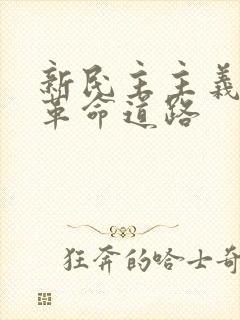 新民主主義
革命道路
狂奔的哈士奇